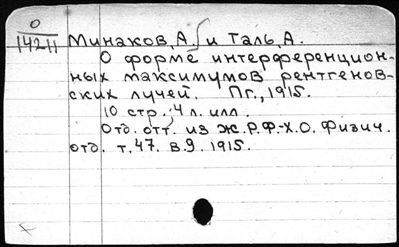 О
14211 Минаков, А. и Таль, А.
О форме интерференцион-
ных максимумов рентгенов-
ских лучей. Пг., 1915.
10 стр., 4 л. илл.
Отд. отт. из Ж.Р.Ф.-Х.О. Физич.
отд. т.47. в.9. 1915.